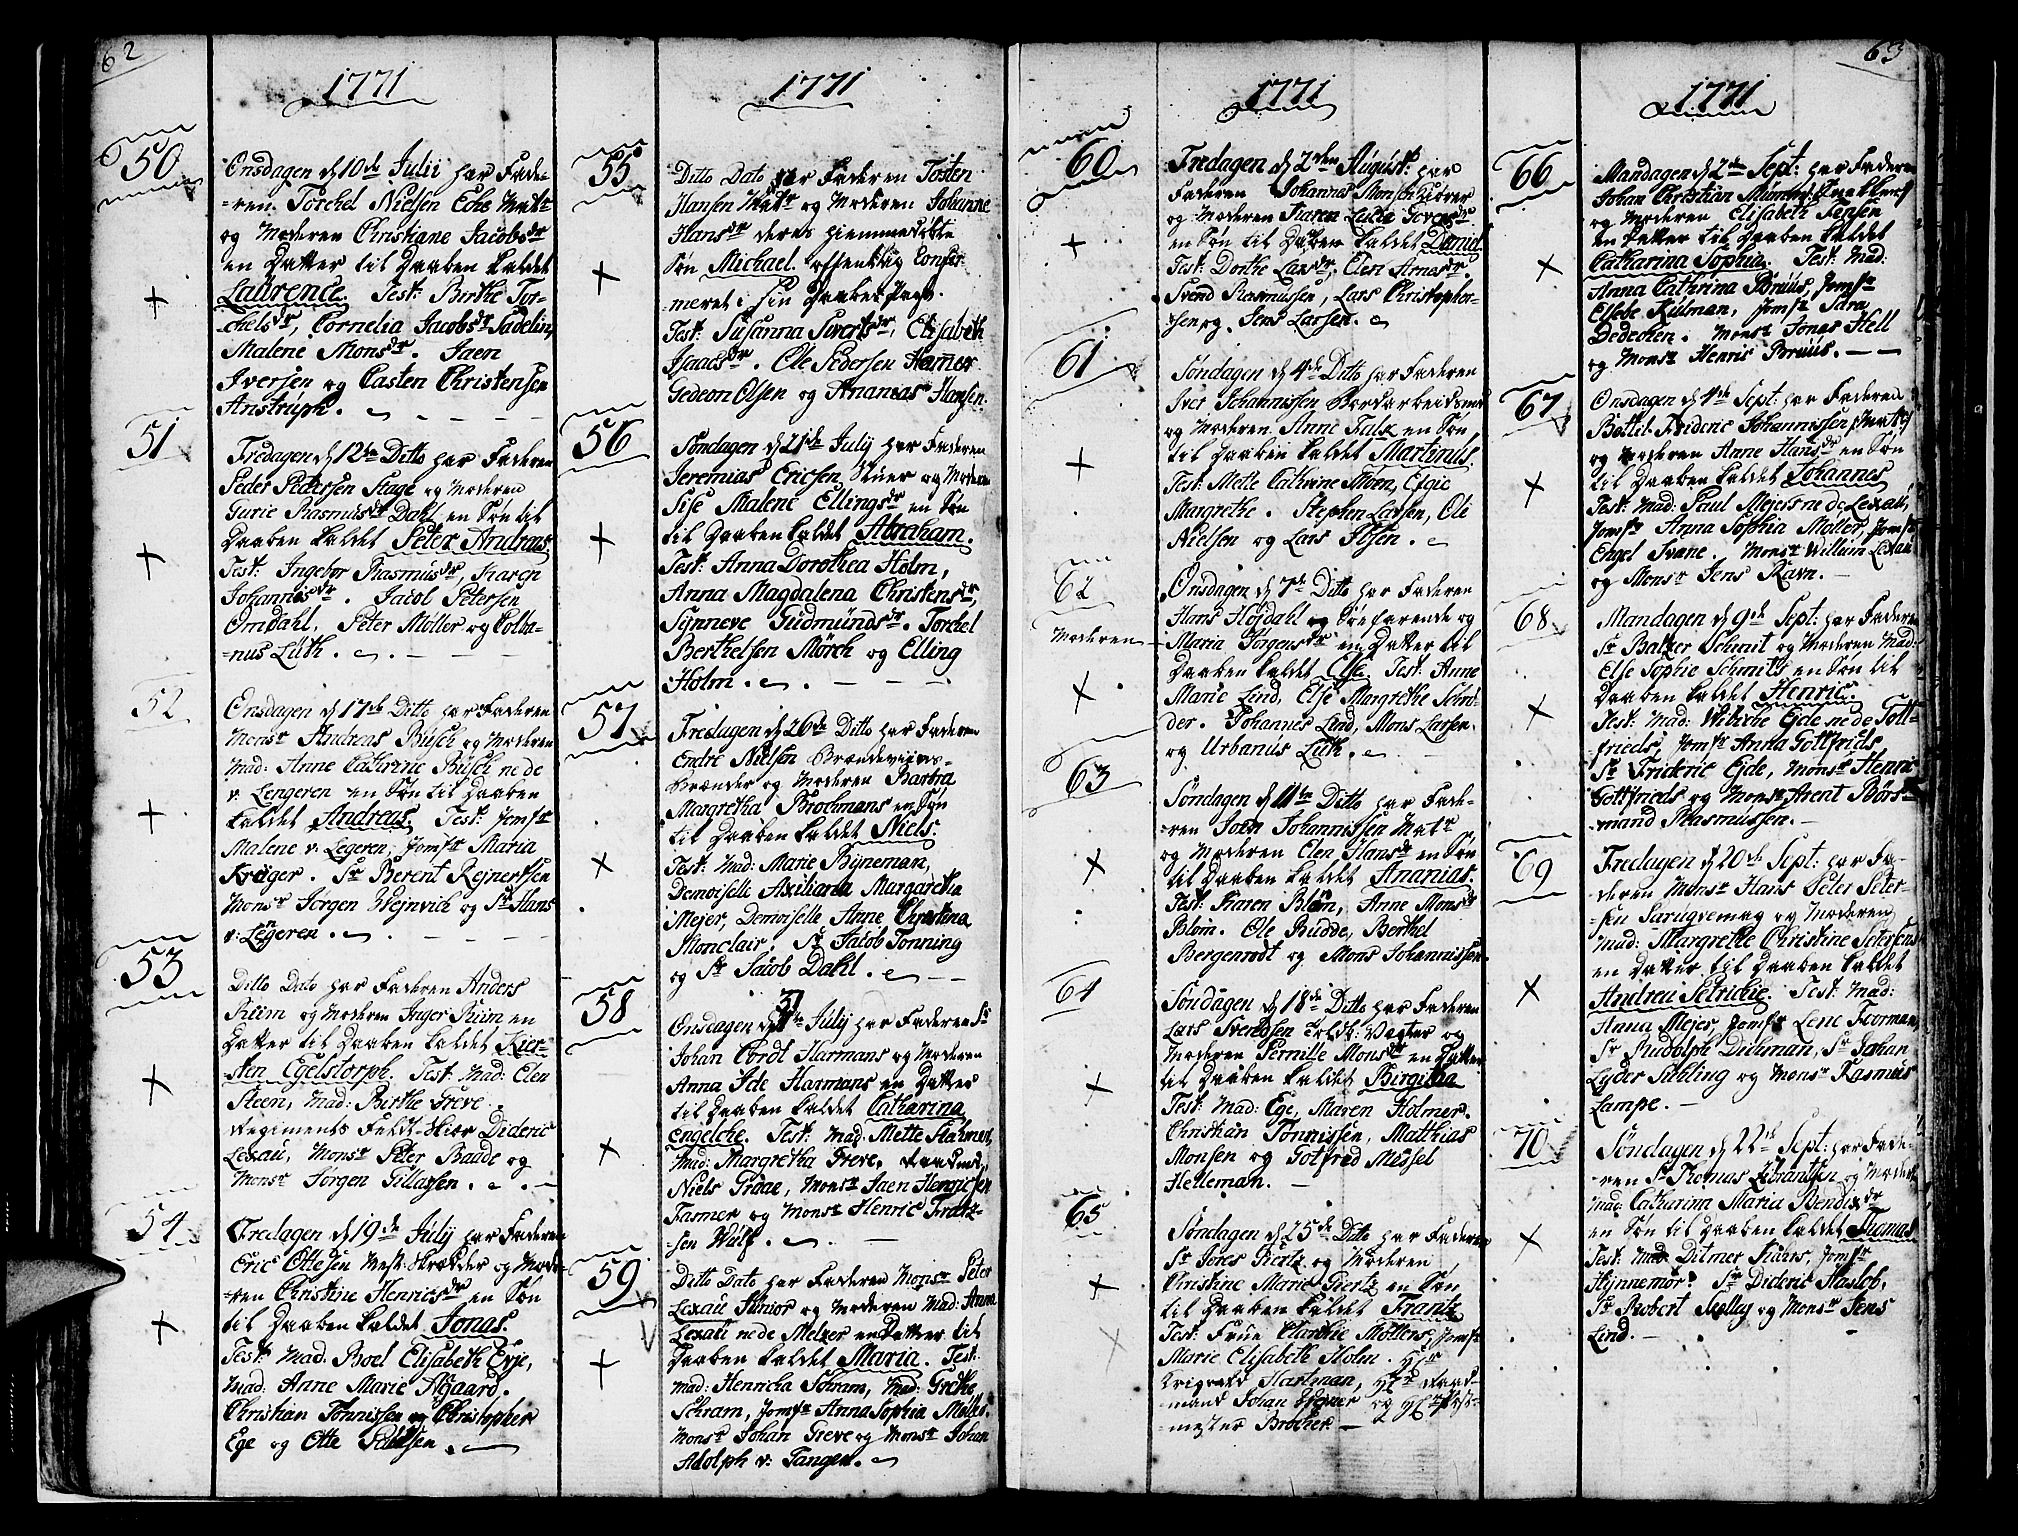 62
1771
50
Onsdagen d 10de Julii har Fade-
=ren Torchel Nielsen Eche Matr
og Moderen Christiane Jacobsdr
en Datter til Daaben kaldet
Laurence. Test: Birthe Tor-
chelsdr, Cornelia Jacobsdr Sadelin,
Malene Monsdr. Jaen
Iversen og Casten Christensen
Anstrüph.
51
Fredagen d 12te Ditto har Faderen
Peder Pedersen Stage og Moderen
Gurie Rasmusdr Dahl en Søn til
Daaben kaldet Peter Andreas
Test: Ingebor Rasmüsdr, Karen
Johannisdr. Jacob Petersen
Omdahl, Peter Möller og Colba-
=nus Lüth.
52
Onsdagen d 17de Ditto har Faderen
Monsr Andreas Büsch og Moderen
Mad: Anne Cathrine Büsch ne de
v: Lengeren en Søn til Daaben
kaldet Andreas. Test: Jomfr
Malene v: Legeren, Jomfr Maria
Krøger. Sr Berent Rejnertsen
Monsr Jørgen Wejnvich og Sr Hans
v: Legeren.
53
Ditto Dato har Faderen Anders
Riim og Moderen Inger Riim en
Datter til Daaben kaldet Kier-
sten Egelstorph. Test: Mad: Elen
Steen, Mad: Birthe Greve.
Regiments Feldt-Skiær Dideric
Lexau, Monsr Peter Baade og
Monsr Jørgen Gillassen.
54
Fredagen d 19de July har Faderen
Eric Ottesen Mest. Skrædder og Mode-
=ren Christine Henricsdr en Søn
til Daaben kaldet Jonas.
Test: Mad. Boel Elisabeth Erje,
Mad: Anne Marie Aagaard.
Christian Tönnissen og Christopher
Ege og Otte Paulsen.
1771
55
Ditto Dato har Faderen Tosten
Hansen Matr og Moderen Johanne
Hansdr deres hiemmedöbte
Søn Michael offentlig Confir-
meret i sin Daabes Pagt.
Test: Susanna Sivertsdr, Elisabeth
Isaacsdr. Ole Pedersen Hamer
Gedeon Olsen og Ananias Hansen.
56
Søndagen d 21de July har Faderen
Jeremias Ericsen Stuer og Moderen
Sise Malene Ellingsdr en Søn
til Daaben kaldet Abraham.
Test: Anna Dorothea Holm,
Anna Magdalena Christensdr,
Synneve Gudmündsdr. Torchel
Berthelsen Mörch og Elling
Holm.
57
Fredagen d 26de Ditto har Faderen
Endre Nielsen Brændeviins-
brænder og Moderen Barbra
Margretha Brochmans en Søn
til Daaben kaldet Niels.
Test: Mad: Marie Bÿneman,
Demoiselle Axiliana Margaretha
Mejer, Demoiselle Anne Christina
Monclair. Sr Jacob Tonning
og Sr Jacob Dahl.
58
Onsdagen d 31te July har Faderen Sr
Johan Cordt Harmans og Moderen
Anna Ide Harmans en Datter
til Daaben kaldet Catharina
Engelche. Test: Mad. Mette Stahmer,
Mad: Margretha Greve. Raadmd
Niels Graae, Monsr Jaen Henricsen
Fasmer og Monsr Henric Frantz-
=sen Wulf.
59
Ditto Dato har Faderen Monsr Peter
Lexau Junior og Moderen Mad: Anna
Lexau ne de Melzer en Datter til
Daaben kaldet Maria. Test:
Mad: Henricha Schram, Mad: Grethe
Schram, Jomfr Anna Sophia Moller.
Monsr Johan Greve og Monsr Johan
Adolph v: Tangen.
63
1771
60
Fredagen d 2den August: har
Faderen Johannes Monsen
og Moderen Karen Lucia Iversdr
en Søn til Daaben kaldet Daniel
Test: Dorthe Larsdr, Elen Arnesdr.
Svend Rasmussen, Lars Christopher-
sen og Jens Larsen.
61
Søndagen d 4de Ditto har Faderen
Iver Johannissen Bordarbeidsmd
og Moderen Anne Falx en Søn
til Daaben kaldet Martinus.
Test: Mette Cathrine Moen,
Margrethe. Stephen Larsen, Ole
Nielsen og Lars Tosen.
62
Moderen
Onsdagen d 7de Ditto har Faderen
Hans Höjdahl og Søefarende og
Maria Jørgensdr en Datter til
Daaben kaldet Else. Test: Anne
Marie Lind, Else Margrethe Schrö-
der. Johannes Lind, Mons Larsen
og Urbanus Lüth.
63
Søndagen d 11te Ditto har Fade-
=ren Joen Johannissen Matr
og Moderen Elen Hansdr en Søn
til Daaben kaldet Ananias.
Test: Karen Blom, Anne Monsdr
Blom. Ole Budde, Berthel
Bergenrodt og Mons Johannissen
64
Søndagen d 18de Ditto har Faderen
Lars Svendsen Toldb: Vagter og
Moderen Pernille Monsdr en Datter
til Daaben kaldet Birgitha
Test: Mad: Ege, Maren Holmer.
Christian Tönnissen, Matthias
Monsen og Gotfred Messel
Helleman.
65
Søndagen d 25de Ditto har Faderen
Sr Jores Giertz og Moderen
Christine Marie Giertz en Søn
til Daaben kaldet Frantz
Test: Frue Clarche Möllers, Jomfr
Marie Elisabeth Holm. Hr
Krigsrd Hartman, Hr Raad-
mand Johan Wegner og Hr Post-
=mester Brocher.
1771
66
Mandagen d 2den Sept: har Faderen
Johan Christian Münster
og Moderen Elisabeth Jensen
en Datter til Daaben kaldet
Catharina Sophia. Test: Mad:
Anna Cathrina Brüüs, Jomfr
Elsebe Külman, Jomfr Sara
Dedechen. Monsr Jonas Hell
og Monsr Henric Brüüs.
67
Onsdagen d 4de Sept: har Faderen
Bottel Frideric Johannissen Matr
og Moderen Anne Hansdr en Søn
til Daaben kaldet Johannes
Test: Mad: Paul Mejers ne de Lexau,
Jomfr Anna Sophia Moller, Jomfr
Engel Svane. Monsr Willum Lexau
og Monsr Jens Ravn.
68
Mandagen d 9de Sept: har Faderen
Sr Baltzer Schmit og Moderen Mad:
Else Sophie Schmits en Søn til
Daaben kaldet Henric.
Test: Mad: Wibiche Ejde ne de Gott-
frieds, Jomfr Anna Gottfrieds
Sr Frideric Ejde, Monsr Henric
Gottfrieds og Monsr Arent Börs-
mand Rasmussen.
69
Fredagen d 20de Sept: har Fa-
deren Monsr Hans Peter Peter-
=sen Parugvemag og Moderen
Mad: Margrethe Christine Petersens
en Datter til Daaben kaldet
Andrea Petrichie. Test: Mad:
Anna Mejer, Jomfr Lene Foorman,
Sr Rudolph Dichman, Sr Johan
Lyder Sibling og Monsr Rasmus
Lampe.
70
Søndagen d 22de Sept: har Fade-
=ren Sr Thomas Ekrantsen og Moderen
Mad: Catharina Maria Bendixdr
en Søn til Daaben kaldet Thomas
Test: Mad Ditmer Kaas, Jomfr
Hynnemör. Sr Dideric Hasløb,
Sr Robert Skelley og Monsr Jens
Lind.